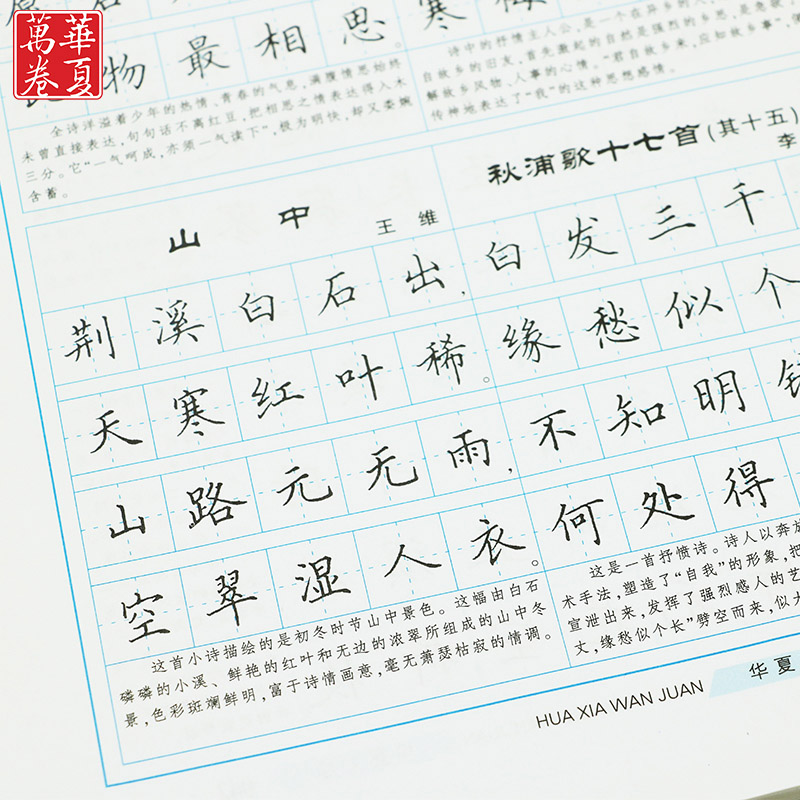 華夏
萬卷
物最相思。
全诗洋溢着少年的热情、青春的气息，满腹情思始终
未曾直接表达，句句话不离红豆，把相思之情表达得入木
三分。它“一气呵成，亦须一气读下”，极为明快，却又委婉
含蓄。
寒
诗中的抒情主人公，是一个在异乡的人，
自故乡的旧友，首先激起的自然是强烈的乡思，是急欲
解故乡风物、人事的心情。“君自故乡来，应知故乡事”，
传神地表达了“我”的这种思想感情。
山中
王维
荆溪白石出，
天寒红叶稀。
山路元无雨，
空翠湿人衣。
这首小诗描绘的是初冬时节山中景色。这幅由白石
磷磷的小溪、鲜艳的红叶和无边的浓翠所组成的山中冬
景，色彩斑斓鲜明，富于诗情画意，毫无萧瑟枯寂的情调。
秋浦歌十七首（其十五）
李
白发三千
缘愁似个
不知明
何处得
这是一首抒愤诗。诗人以奔放
术手法，塑造了“自我”的形象，把
宣泄出来，发挥了强烈感人的艺
丈，缘愁似个长”劈空而来，似
HUA XIA WAN JUAN
华夏